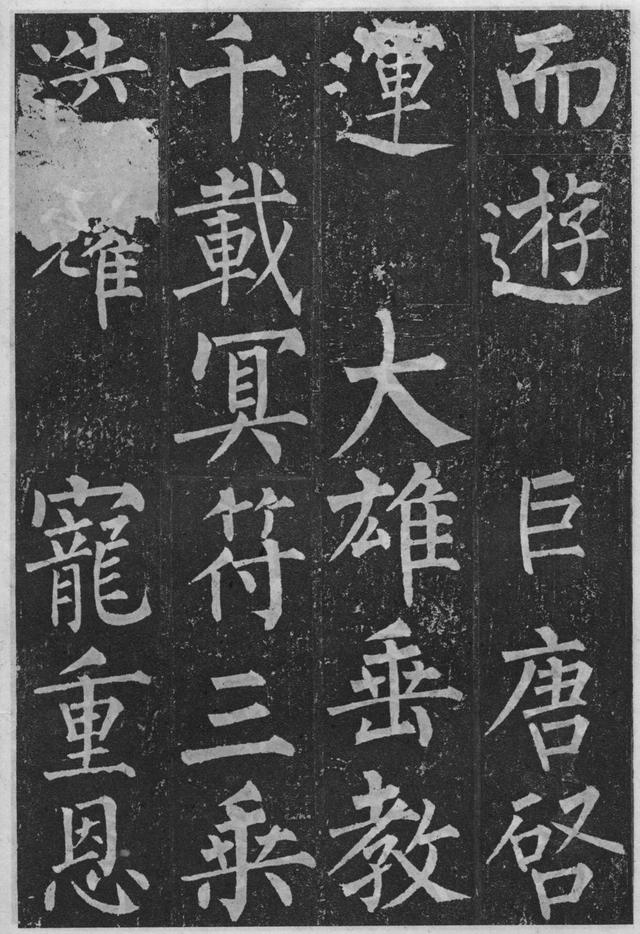 而遊巨唐啓
運大雄垂教
千載冥符三乘
寵重恩